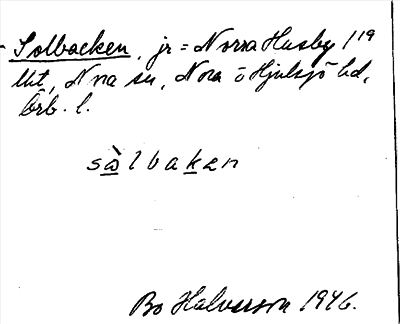 Solbacken, jr = Norra Husby 1¹⁹
Utt, Nra sn, Nora o Hjulsjö hd,
Örb. l.
sὰlbakən
Bo Halverson 1946.